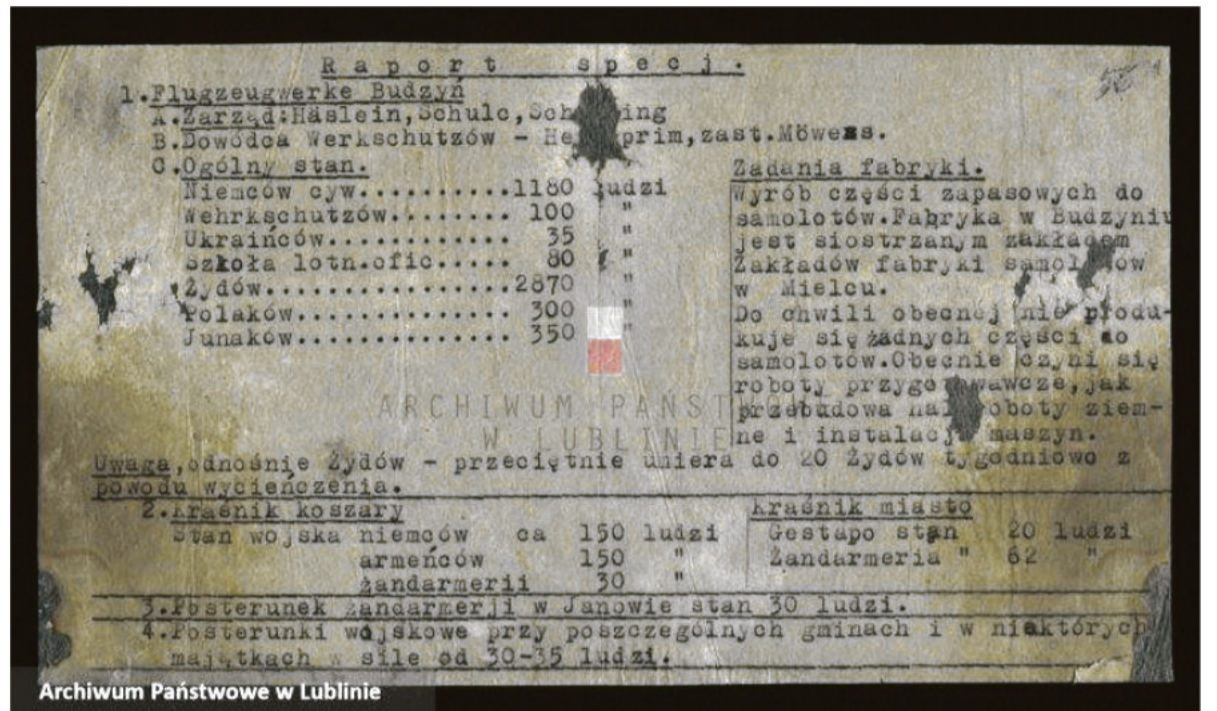 Raport specj.
1.Flugzeugwerke Budzyń
A.Zarząd:Häslein,Schulc,Sch ing
B.Dowódca Werkschutzów - He prim,zast.Möwens.
C.Ogólny stan.
Niemców cyw..........1180 ludzi
Wehrkschutzów........ 100 "
Ukraińców............ 35 "
Szkoła lotn.ofic..... 80 "
Żydów................2870 "
Polaków.............. 300 "
Junaków.............. 350 "
Zadania fabryki.
Wyrób części zapasowych do
samolotów.Fabryka w Budzyniu
jest siostrzanym zakładem
Zakładów fabryki samolotów
w Mielcu.
Do chwili obecnej nie produ-
kuje się żadnych części do
samolotów.Obecnie czyni się
roboty przygotowawcze,jak
przebudowa hal roboty ziem-
ne i instalacja maszyn.
ARCHIWUM PAŃSTWOWE
W LUBLINIE
Uwaga,odnośnie Żydów - przeciętnie umiera do 20 Żydów tygodniowo z
powodu wycieńczenia.
2.Kraśnik koszary
Stan wojska niemców ca 150 ludzi
armeńców 150 "
żandarmerii 30 "
Kraśnik miasto
Gestapo stan 20 ludzi
Żandarmeria " 62 "
3.Posterunek żandarmerji w Janowie stan 30 ludzi.
4.Posterunki wojskowe przy poszczególnych gminach i w niektórych
majątkach w sile od 30-35 ludzi.
Archiwum Państwowe w Lublinie